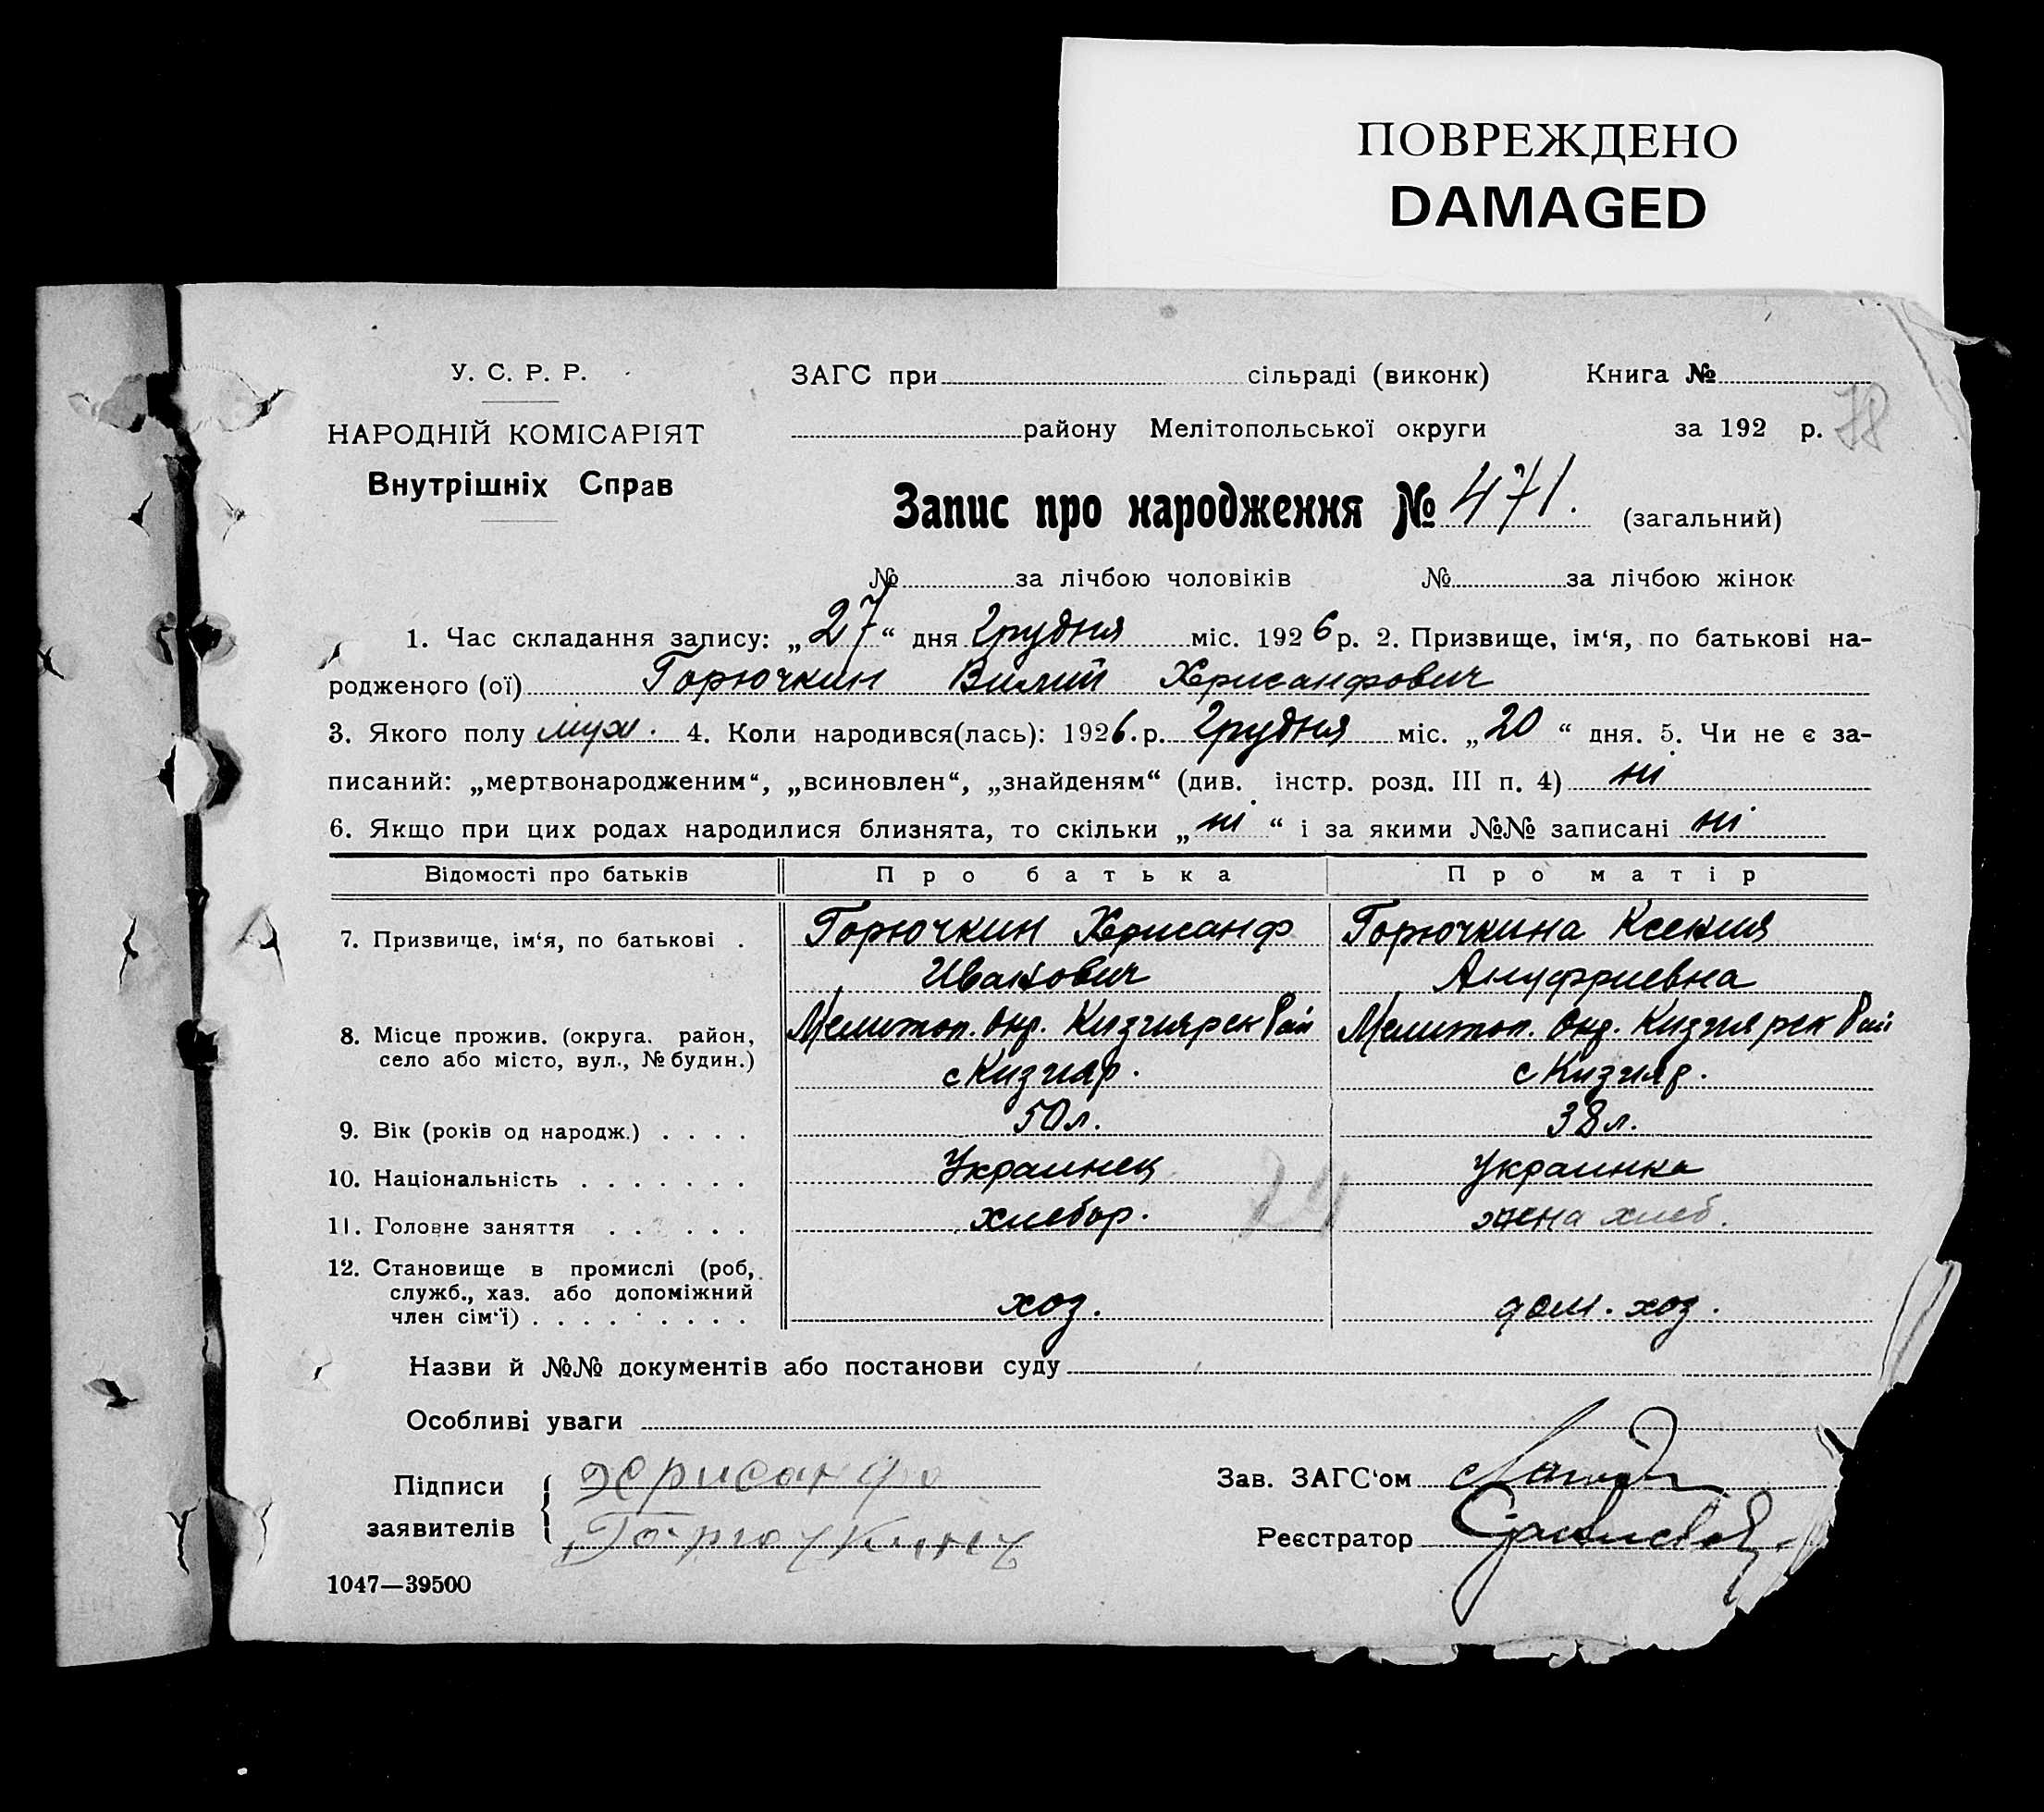 ПОВРЕЖДЕНО
DAMAGED
У. С. Р. Р.
НАРОДНІЙ КОМІСАРІЯТ
Внутрішніх Справ
ЗАГС при сільраді (виконк) Книга №
району Мелітопольської округи за 192 р. 78
Запис про народження № 471. (загальний)
№ за лічбою чоловіків № за лічбою жінок
1. Час складання запису: „27“ дня Грудня міс. 1926 р. 2. Призвище, ім‘я, по батькові на-
родженого (ої) Горючкин Вилий Хрисанфович
3. Якого полу муж. 4. Коли народився(лась): 1926. р. Грудня міс. „20“ дня. 5. Чи не є за-
писаний: „мертвонародженим“, „всиновлен“, „знайденям“ (див. інстр. розд. III п. 4) ні
6. Якщо при цих родах народилися близнята, то скільки „ні“ і за якими №№ записані ні
Відомості про батьків Про батька Про матір
7. Призвище, ім‘я, по батькові . Горючкин Хрисанф Горючкина Ксения
Иванович Ануфриевна
8. Місце прожив. (округа. район, село або місто, вул., № будин.) Мелитоп. Окр. Кизиярск Рай Мелитоп. Окр. Кизиярск Рай
с Кизияр. с Кизияр.
9. Вік (років од народж.) . . . . 50 л. 38 л.
10. Національність . . . . . . . Украинец Украинка
11. Головне заняття . . . . . . хлебор. жена хлеб.
24
12. Становище в промислі (роб, служб., хаз. або допоміжний член сім‘ї) . . . . . . . . . хоз. дом. хоз.
Назви й №№ документів або постанови суду
Особливі уваги
Підписи заявителів Хрисанф
Горючкинъ
Зав. ЗАГС‘ом
Реєстратор
1047—39500